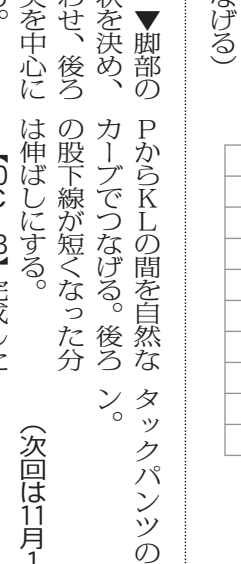 なげる）
▼脚部の
状を決め、
わせ、後ろ
を中心に
ＰからＫＬの間を自然な
カーブでつなげる。後ろ
の股下線が短くなった分
は伸ばしにする。
完成した
タックパンツの
ン。
（次回は11月1